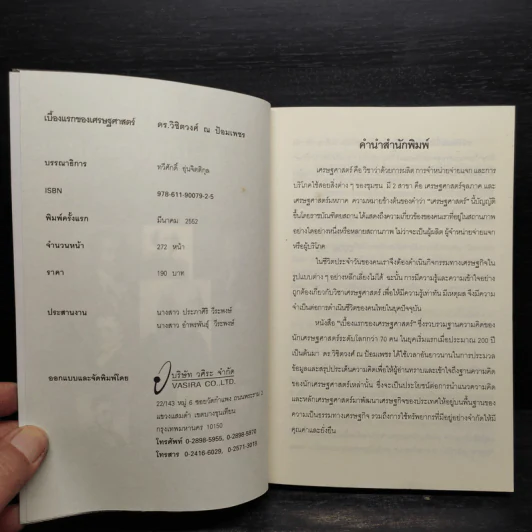 เบื้องแรกของเศรษฐศาสตร์ ดร.วิชิตวงศ์ ณ ป้อมเพชร
บรรณาธิการ ทวีศักดิ์ อุ่นจิตติกุล
ISBN 978-611-90079-2-5
พิมพ์ครั้งแรก มีนาคม 2552
จำนวนหน้า 272 หน้า
ราคา 190 บาท
ประสานงาน นางสาว ประภาศิริ วีระพงษ์
นางสาว อำพรพันธุ์ วีระพงษ์
ออกแบบและจัดพิมพ์โดย บริษัท วศิระ จำกัด
VASIRA CO.,LTD.
22/143 หมู่ 6 ซอยวัดกำแพง ถนนพระราม 2
แขวงแสมดำ เขตบางขุนเทียน
กรุงเทพมหานคร 10150
โทรศัพท์ 0-2898-5955, 0-2898-5970
โทรสาร 0-2416-6029, 0-2571-3019
คำนำสำนักพิมพ์
เศรษฐศาสตร์ คือ วิชาว่าด้วยการผลิต การจำหน่ายจ่ายแจก และการ
บริโภคใช้สอยสิ่งต่าง ๆ ของชุมชน มี 2 สาขา คือ เศรษฐศาสตร์จุลภาค และ
เศรษฐศาสตร์มหภาค ความหมายข้างต้นของคำว่า “เศรษฐศาสตร์” นี้บัญญัติ
ขึ้นโดยราชบัณฑิตยสถาน ได้แสดงถึงความเกี่ยวข้องของคนเราที่อยู่ในสถานภาพ
อย่างใดอย่างหนึ่งหรือหลายสถานภาพ ไม่ว่าจะเป็นผู้ผลิต ผู้จำหน่ายจ่ายแจก
หรือผู้บริโภค
ในชีวิตประจำวันของคนเราจึงต้องดำเนินกิจกรรมทางเศรษฐกิจใน
รูปแบบต่าง ๆ อย่างหลีกเลี่ยงไม่ได้ ฉะนั้น การมีความรู้และความเข้าใจอย่าง
ถูกต้องเกี่ยวกับวิชาเศรษฐศาสตร์ เพื่อให้มีความรู้เท่าทัน มีเหตุผล จึงมีความ
จำเป็นต่อการดำเนินชีวิตของคนไทยในยุคปัจจุบัน
หนังสือ “เบื้องแรกของเศรษฐศาสตร์” ซึ่งรวบรวมฐานความคิดของ
นักเศรษฐศาสตร์ระดับโลกกว่า 70 คน ในยุคเริ่มแรกเมื่อประมาณ 200 ปี
เป็นต้นมา ดร.วิชิตวงศ์ ณ ป้อมเพชร ได้ใช้เวลาอันยาวนานในการประมวล
ข้อมูลและสรุปประเด็นความคิดเพื่อให้ผู้อ่านทราบและเข้าใจถึงฐานความคิด
ของนักเศรษฐศาสตร์เหล่านั้น ซึ่งจะเป็นประโยชน์ต่อการนำแนวความคิด
และหลักเศรษฐศาสตร์มาพัฒนาเศรษฐกิจของประเทศให้อยู่บนพื้นฐานของ
ความเป็นธรรมทางเศรษฐกิจ รวมถึงการใช้ทรัพยากรที่มีอยู่อย่างจำกัดให้มี
คุณค่าและยั่งยืน